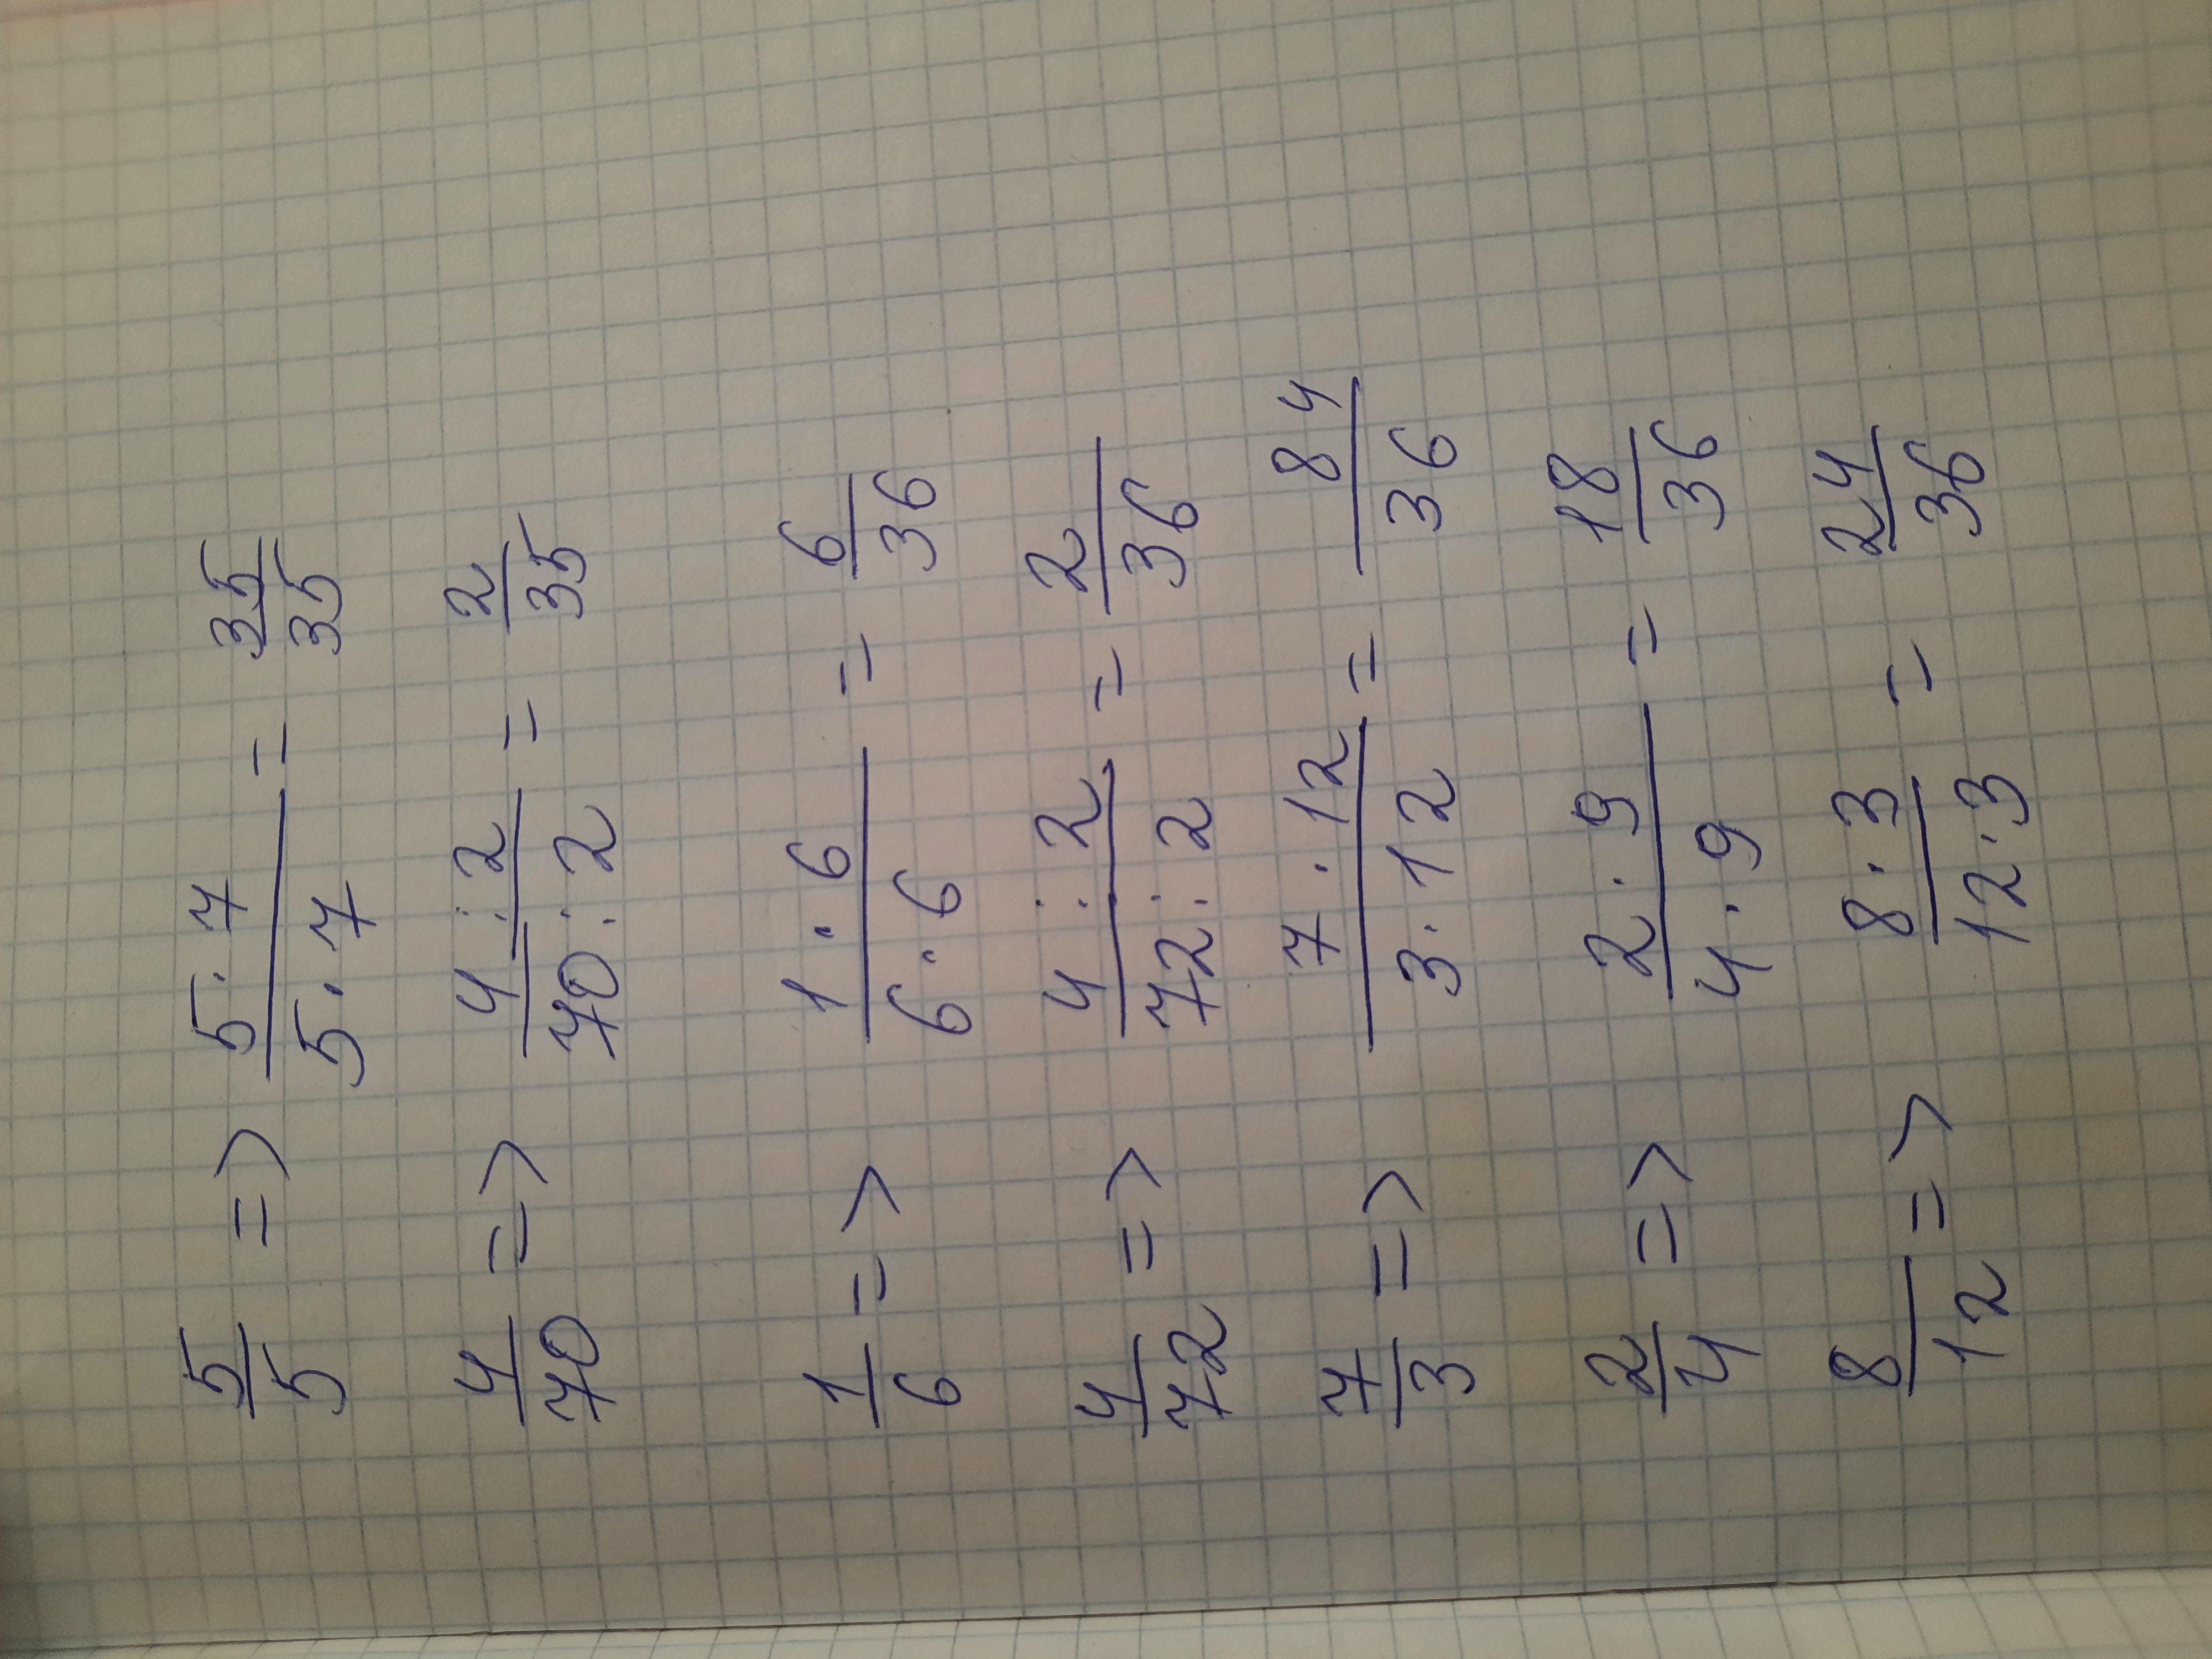 5/5 => 5·7/5·7 = 35/35
4/70 => 4:2/70:2 = 2/35
1/6 => 1·6/6·6 = 6/36
4/72 => 4:2/72:2 = 2/36
7/3 => 7·12/3·12 = 84/36
2/4 => 2·9/4·9 = 18/36
8/12 => 8·3/12·3 = 24/36